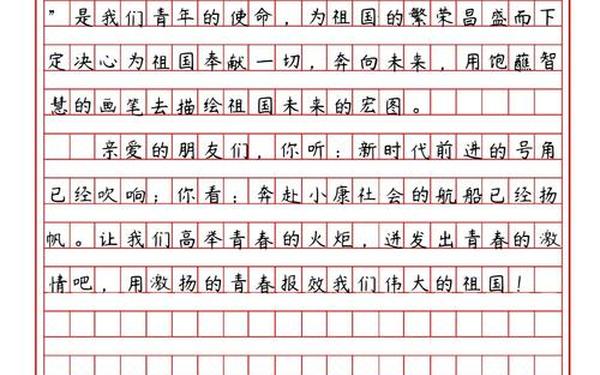 ”是我们青年的使命，为祖国的繁荣昌盛而下
定决心为祖国奉献一切，奔向未来，用饱蘸智
慧的画笔去描绘祖国未来的宏图。
亲爱的朋友们，你听：新时代前进的号角
已经吹响；你看：奔赴小康社会的航船已经扬
帆。让我们高举青春的火炬，迸发出青春的激
情吧，用激扬的青春报效我们伟大的祖国！